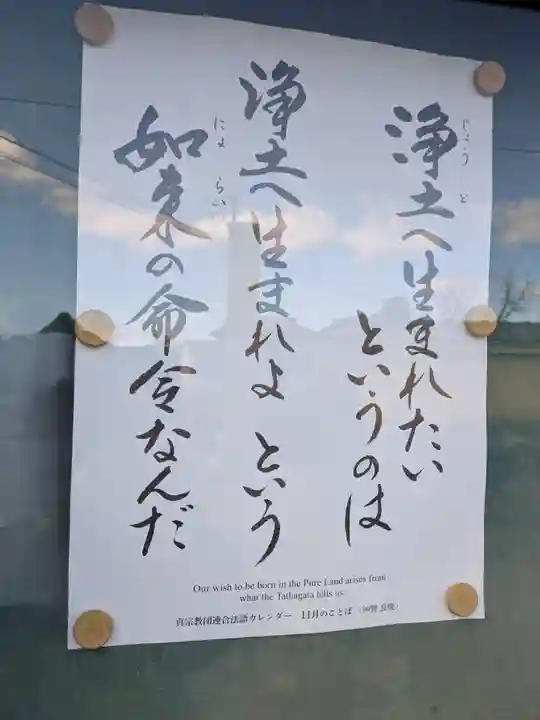 浄土へ生まれたい
じょうど
というのは
浄土へ生まれよ という
如来の命令なんだ
にょらい
Our wish to be born in the Pure Land arises from
what the Tathagata tells us.
真宗教団連合法語カレンダー 11月のことば